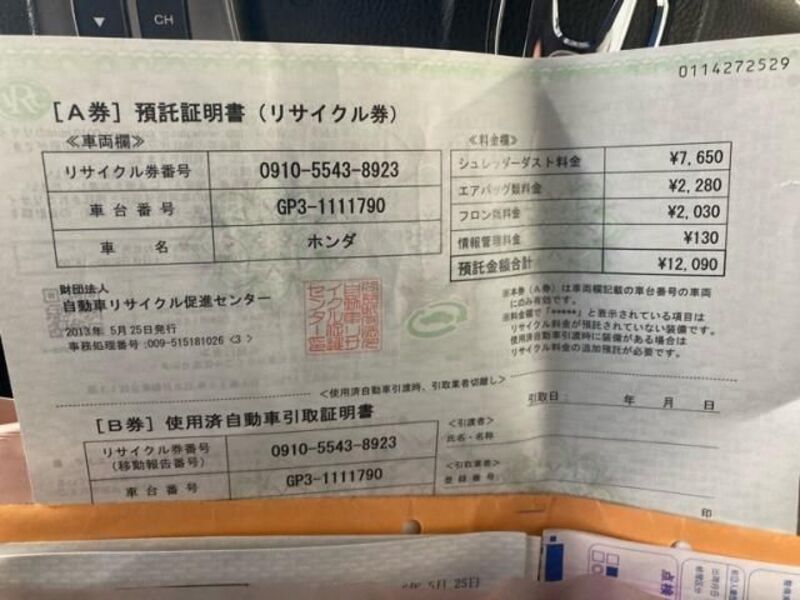 CH
0114272529
[A券] 預託証明書 (リサイクル券)
≪車両欄≫
リサイクル券番号 0910-5543-8923
車台番号 GP3-1111790
車名 ホンダ
≪料金欄≫
シュレッダーダスト料金 ¥7,650
エアバッグ類料金 ¥2,280
フロン類料金 ¥2,030
情報管理料金 ¥130
預託金額合計 ¥12,090
財団法人
自動車リサイクル促進センター
2013年 5月25日発行
事務処理番号:009-515181026 <3 >
※本券(A券)は車両欄記載の車台番号の車両
にのみ有効です。
※料金欄で「*****」と表示されている項目は
リサイクル料金が預託されていない装備です。
使用済自動車引渡時に装備がある場合は
リサイクル料金の追加預託が必要です。
<使用済自動車引渡時、引取業者切離し>
[B券] 使用済自動車引取証明書
引取日: 年 月 日
リサイクル券番号
(移動報告番号) 0910-5543-8923
車台番号 GP3-1111790
<引渡者>
氏名・名称
<引取業者>
登録番号
印
5月 25日
点検